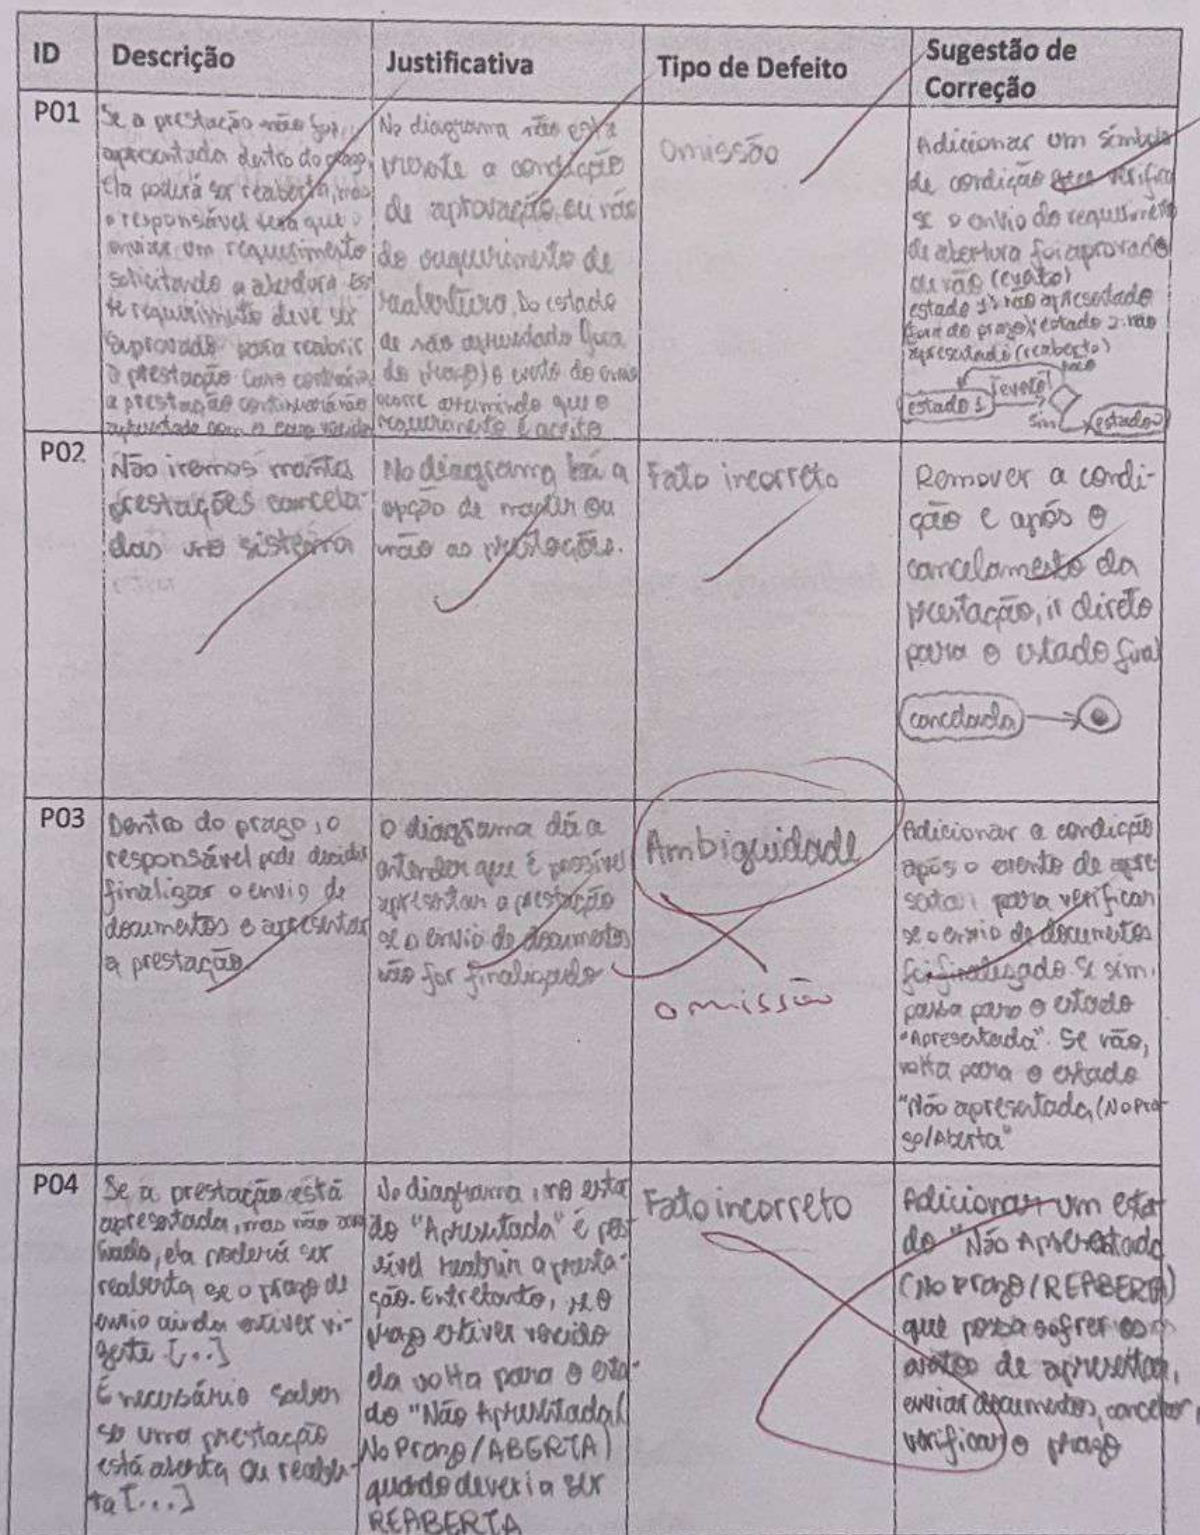 ID
Descrição
Justificativa
Tipo de Defeito
Sugestão de
Correção
P01
Se a prestação não for
apresentada dentro do prazo,
ela poderá ser reaberta, mas
o responsável terá que
enviar um requerimento
solicitando a abertura Es
te requerimento deve ser
aprovado para reabrir
a prestação caso contrário
a prestação continuará não
apresentada com o prazo vencido
No diagrama não está
a condição
de aprovação ou não
do requerimento de
reabertura. Do estado
de não apresentado (fora
do prazo) o evento de envio
ocorre assumindo que o
requerimento é aceito
Omissão
Adicionar um símbolo
de condição verifica
se o envio do requerimento
de abertura foi aprovado
ou não (evento)
estado 1: não apresentado
fora do prazo / estado 2: não
apresentado (reaberto)
não
estado 1
[evento]
sim
estado 2
P02
Não iremos manter
prestações cancela-
das no sistema
No diagrama há a
opção de manter ou
não as prestações.
Fato incorreto
Remover a condi-
ção e após o
cancelamento da
prestação, ir direto
para o estado final
cancelada
P03
Dentro do prazo, o
responsável pode decidir
finalizar o envio de
documentos e apresentar
a prestação.
O diagrama dá a
entender que é possível
apresentar a prestação
se o envio de documentos
não for finalizado
Ambiguidade
omissão
Adicionar a condição
após o evento de apre-
sentar para verificar
se o envio de documentos
foi finalizado. Se sim,
passa para o estado
"Apresentada". Se não,
volta para o estado
"Não apresentada (No Pra-
zo/Aberta"
P04
Se a prestação está
apresentada, mas não
, ela poderá ser
reaberta se o prazo de
envio ainda estiver vi-
gente [...]
É necessário saber
se uma prestação
está aberta ou reaber-
ta [...]
No diagrama, no esta
do "Apresentada" é pos
sível reabrir a presta-
ção. Entretanto, se o
prazo estiver vencido
ela volta para o esta-
do "Não Apresentada (
No Prazo/ABERTA)
quando deveria ser
REABERTA
Fato incorreto
Adicionar um esta
do "Não Apresentada
(No Prazo/REABERTA)
que possa sofrer os
eventos de apresentar,
enviar documentos, cancelar,
verificar o prazo